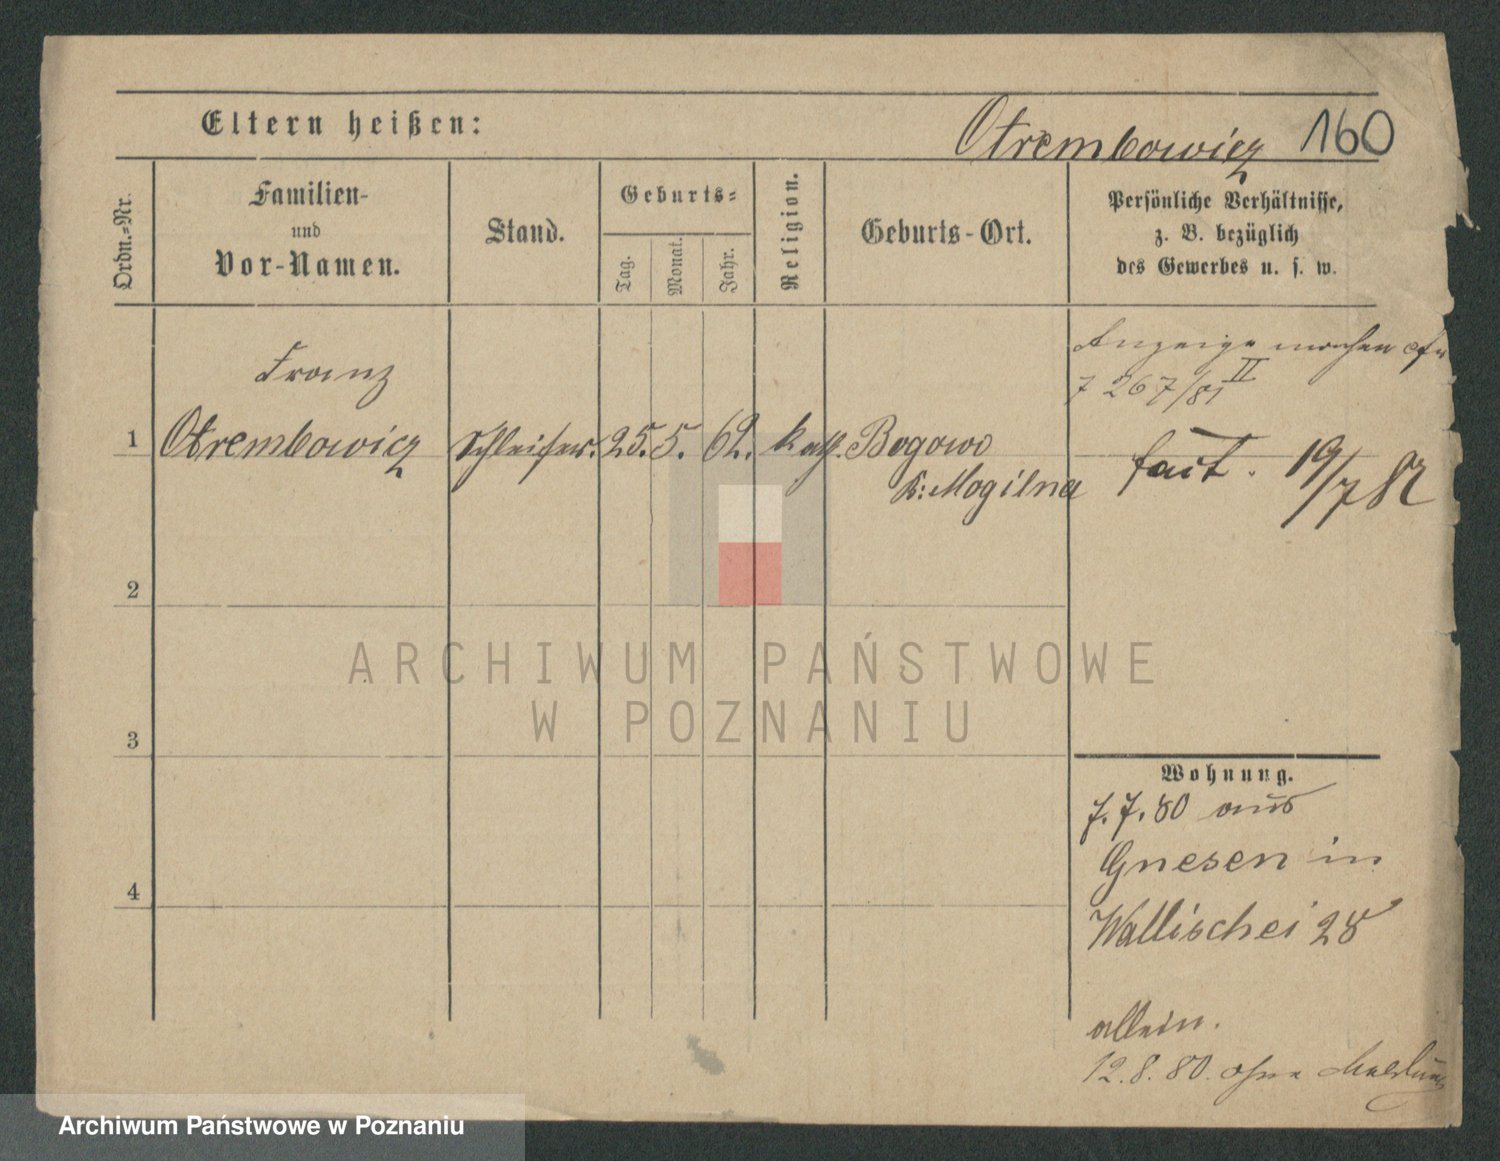 Eltern heißen:
Otrembowicz 160
Ordn.-Nr.
Familien-
und
Vor-Namen.
Stand.
Geburts-
Tag.
Monat.
Jahr.
Religion.
Geburts-Ort.
Persönliche Verhältnisse,
z. B. bezüglich
des Gewerbes u. s. w.
Anzeige machen cfr
7 267/81 II
Franz
1 Otrembowicz Schleifer. 25. 5. 62. kath. Bogowo
K: Mogilna
fact. 19/7 82
2
3
4
ARCHIWUM PAŃSTWOWE
W POZNANIU
Wohnung.
7. 7. 80 aus
Gnesen in
Wallischei 28
allein.
12. 8. 80. ohne Meldung
Archiwum Państwowe w Poznaniu